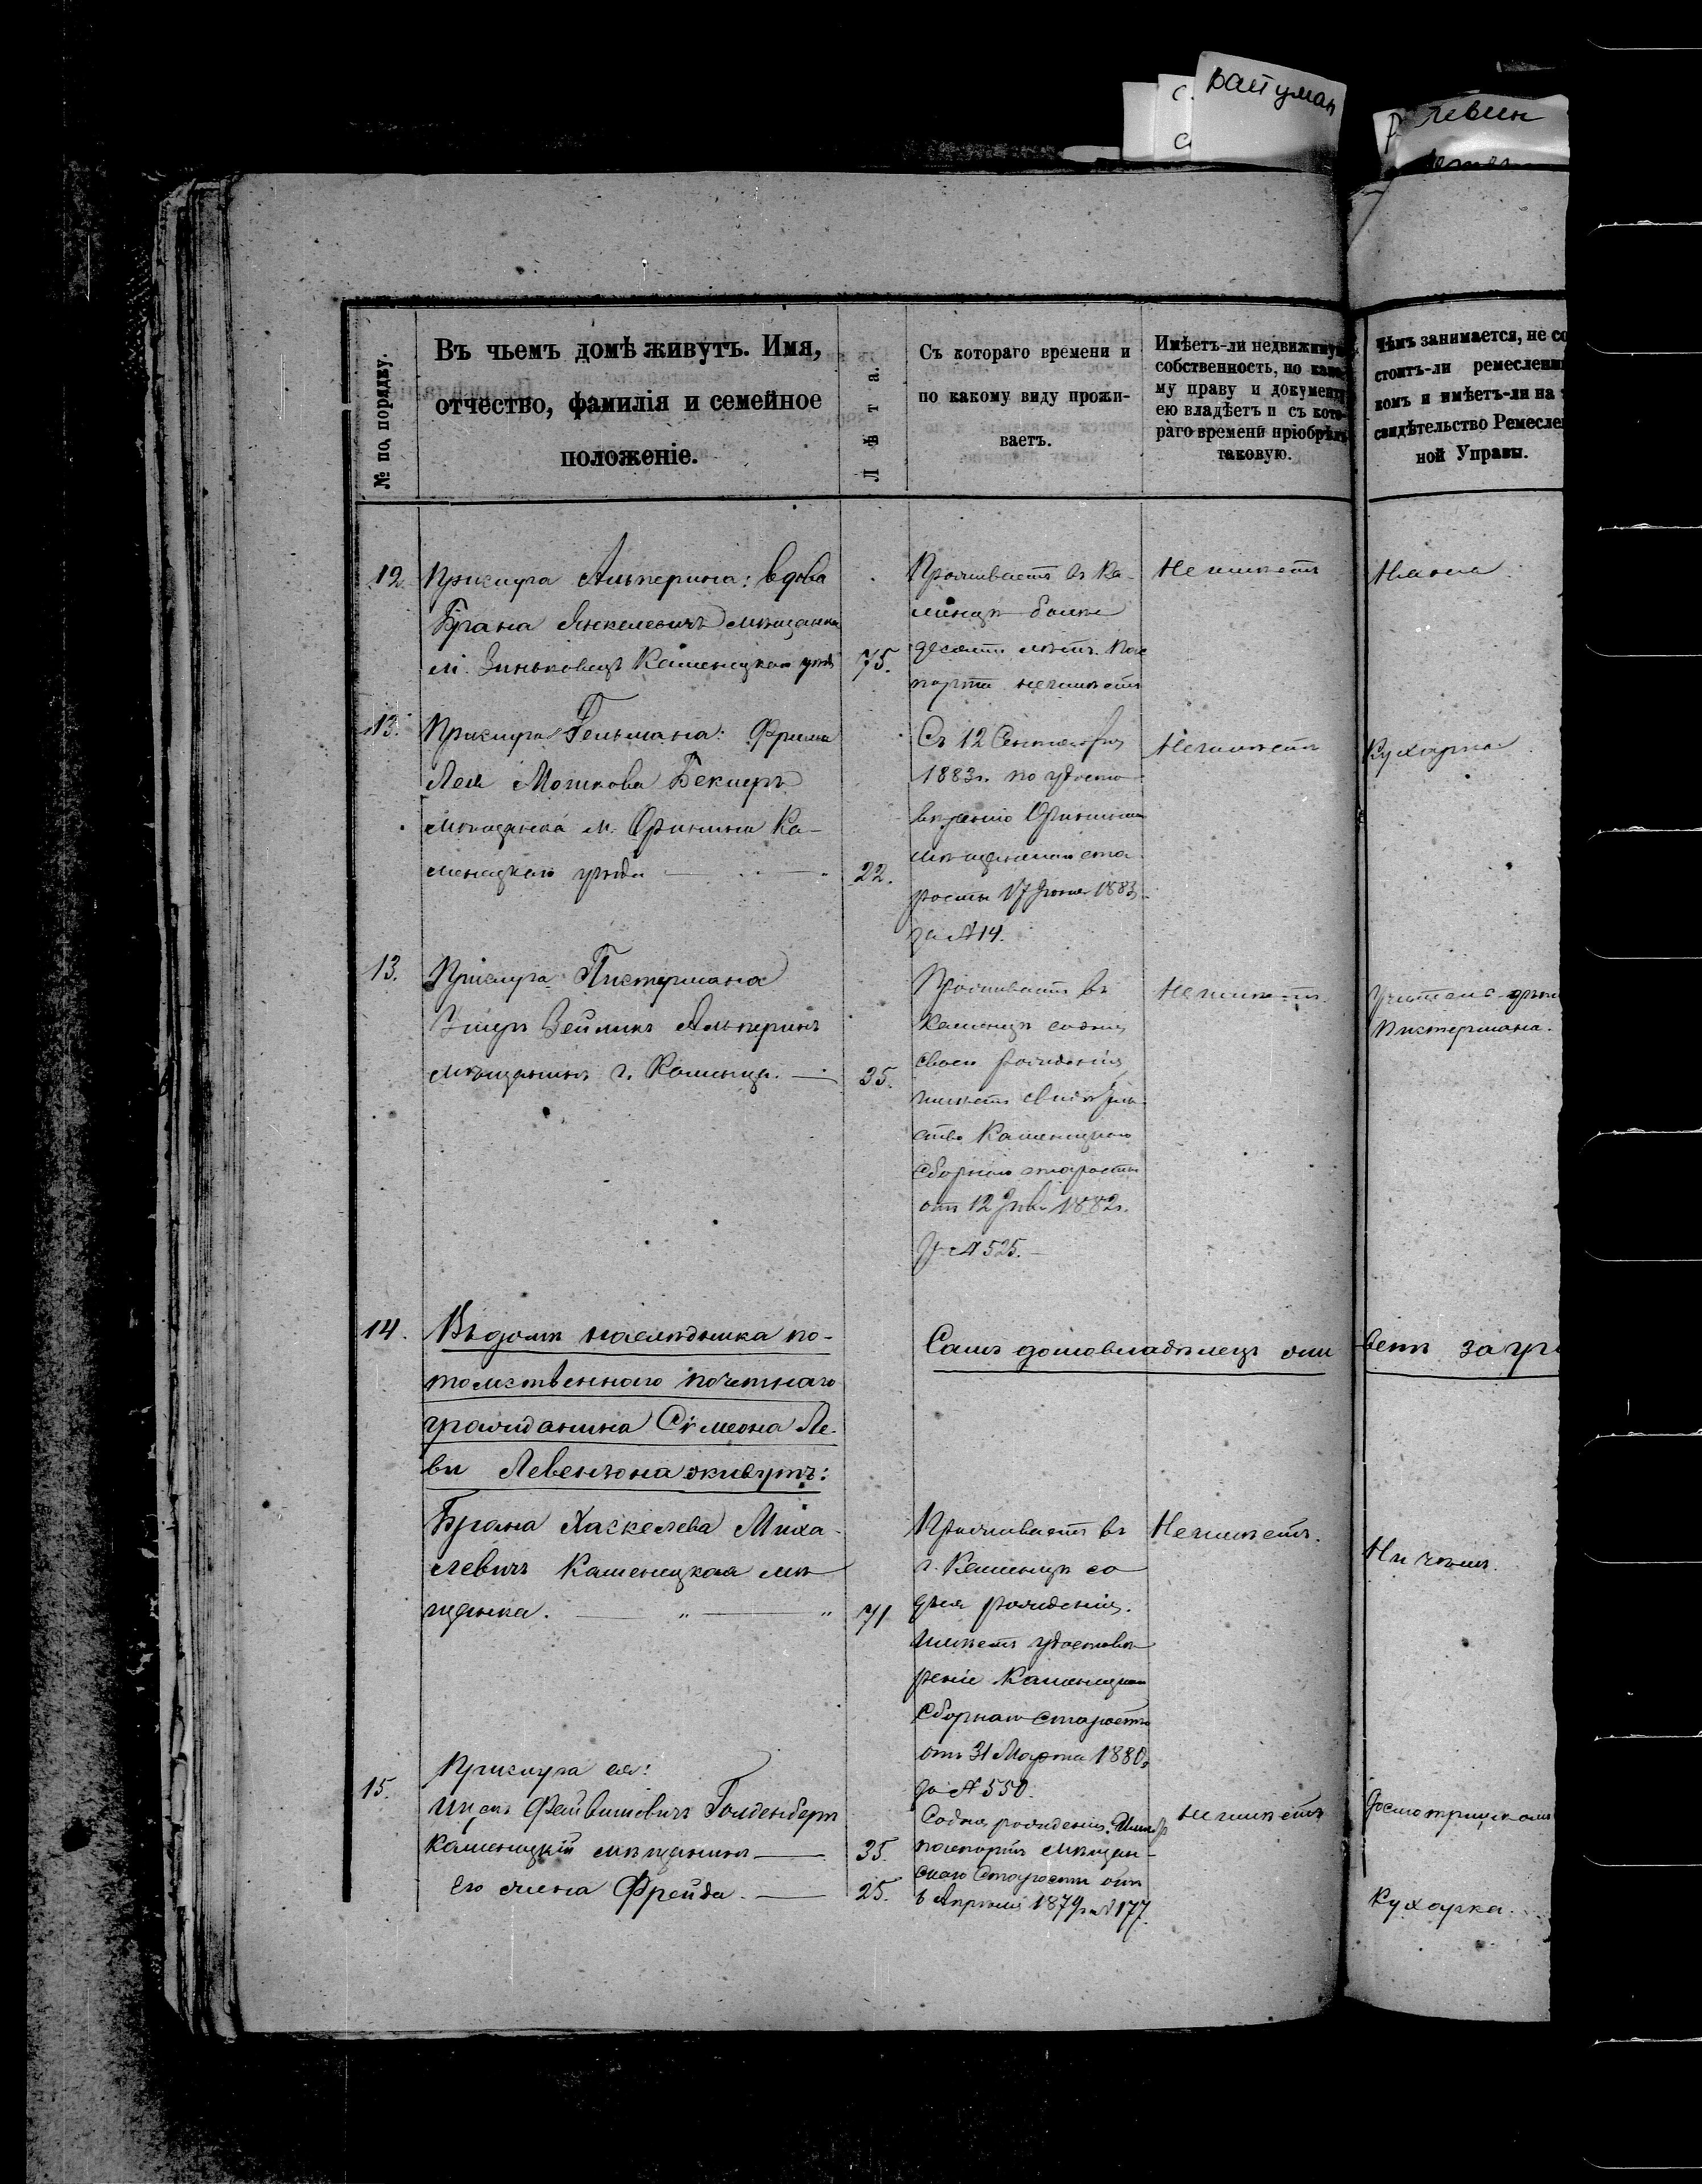 Левин
№ по порядку.
Въ чьемъ домѣ живутъ. Имя,
отчество, фамилія и семейное
положеніе.
Лѣта.
Съ котораго времени и
по какому виду прожи-
ваетъ.
Имѣетъ-ли недвижимую
собственность, по како-
му праву и документу
ею владѣетъ и съ кото-
раго времени пріобрѣлъ
таковую.
Чѣмъ занимается, не со
стоитъ-ли ремесленни
комъ и имѣетъ-ли на
свидѣтельство Ремеслен
ной Управы.
12.
Прислуга Альперина: вдова
Брана Янкелевичъ мѣщанка
м. Зиньковецъ Каменецкаго уѣзда
75.
Проживаетъ въ Ка-
менцѣ болѣе
десяти лѣтъ. Пас
порта неимѣетъ
Неимѣетъ
Няня
13.
Прислуга Гельмана: Фрима
Лея Мошкова Бекмеръ
мѣщанка м. Орынина Ка-
менецкаго уѣзда
22.
Съ 12 Сентября
1883 г. по удосто
вѣренію Орынин
мѣщанскаго ста
росты 17 Іюня 1883
за № 14.
Неимѣетъ
Кухарка
13.
Прислуга Пистермана
Зейликъ Альперинъ
мѣщанинъ г. Каменца.
35.
Проживаетъ въ
Каменцѣ со дня
своего рожденія
имѣетъ свидѣтель
ство Каменецкаго
сборнаго старосты
отъ 12 1882 г.
за № 525.
Неимѣетъ.
Учитель дѣтей
Пистермана.
14.
Въ домѣ наслѣдника по-
томственнаго почетнаго
гражданина Симеона Ле-
ви Левензона живутъ:
Самъ домовладѣлецъ жи
ветъ за гр
Брана Хаскелева Миха-
левичъ Каменецкая мѣ
щанка.
71
Проживаетъ въ
г. Каменцѣ со
дня рожденія.
Имѣетъ удостовѣ
реніе Каменецкаго
Сборнаго Старосты
отъ 31 Марта 1880 г.
за № 550.
Неимѣетъ.
Ничѣмъ.
15.
Прислуга ея:
Ицекъ Файвишовичъ Голденберъ
Каменецкій мѣщанинъ
35.
Его жена Фрейда.
25.
Со дня рожденія. Имѣетъ
паспортъ мѣщан-
скаго Старосты отъ
6 Апрѣля 1879 за № 177.
Неимѣетъ
Кухарка.